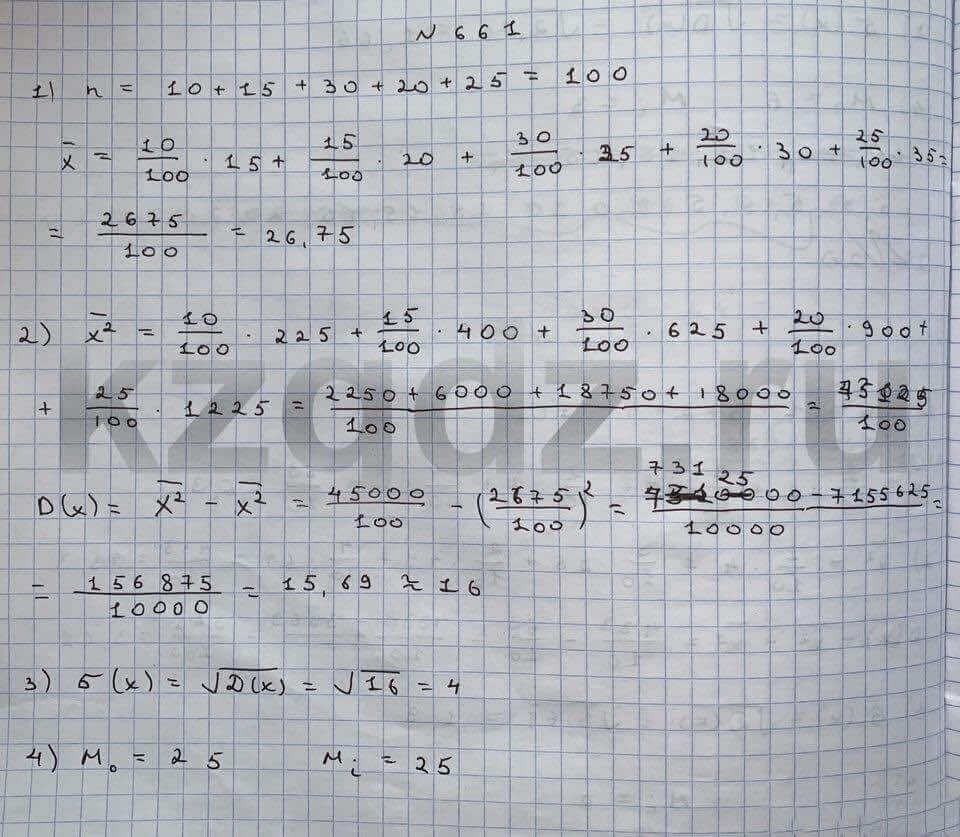 N 661
1) n = 10 + 15 + 30 + 20 + 25 = 100
x̄ = 10/100 · 15 + 15/100 · 20 + 30/100 · 25 + 20/100 · 30 + 25/100 · 35 =
= 2675/100 = 26,75
2) x̄² = 10/100 · 225 + 15/100 · 400 + 30/100 · 625 + 20/100 · 900 +
+ 25/100 · 1225 = (2250 + 6000 + 18750 + 18000)/100 = /100
D(x) = x̄² - x̄² = 45000/100 - (2675/100)² = (73125 00 - 7155625)/10000 =
= 156875/10000 = 15,69 ≈ 16
3) б(x) = √D(x) = √16 = 4
4) M₀ = 25 Mᵢ = 25
kzgdz.ru